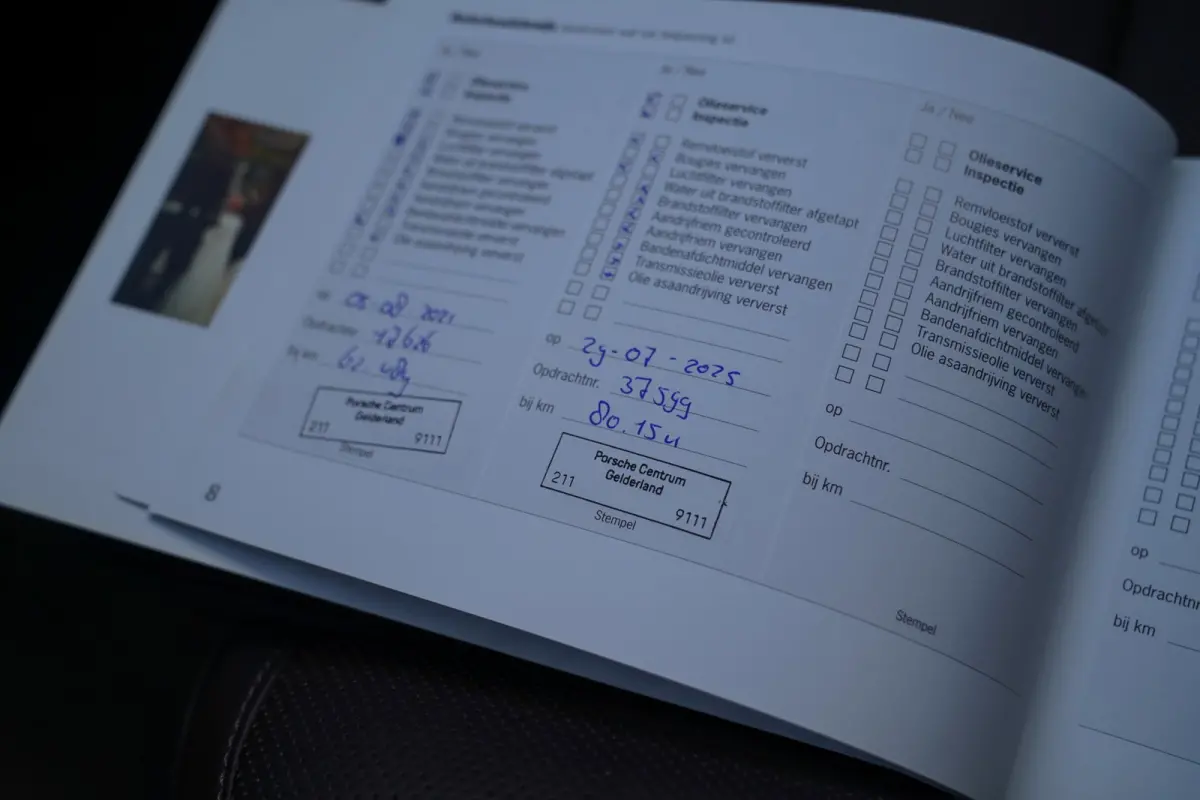 Ja / Nee
Olieservice
Inspectie
Remvloeistof ververst
Bougies vervangen
Luchtfilter vervangen
Water uit brandstoffilter afgetapt
Brandstoffilter vervangen
Aandrijfriem gecontroleerd
Aandrijfriem vervangen
Bandenafdichtmiddel vervangen
Transmissieolie ververst
Olie asaandrijving ververst
op 05 08 2021
Opdrachtnr.
bij km
Porsche Centrum
Gelderland
211 9111
Stempel
8
Ja / Nee
Olieservice
Inspectie
Remvloeistof ververst
Bougies vervangen
Luchtfilter vervangen
Water uit brandstoffilter afgetapt
Brandstoffilter vervangen
Aandrijfriem gecontroleerd
Aandrijfriem vervangen
Bandenafdichtmiddel vervangen
Transmissieolie ververst
Olie asaandrijving ververst
op 29-07-2025
Opdrachtnr. 37599
bij km 80.154
Porsche Centrum
Gelderland
211 9111
Stempel
Ja / Nee
Olieservice
Inspectie
Remvloeistof ververst
Bougies vervangen
Luchtfilter vervangen
Water uit brandstoffilter afgetapt
Brandstoffilter vervangen
Aandrijfriem gecontroleerd
Aandrijfriem vervangen
Bandenafdichtmiddel vervangen
Transmissieolie ververst
Olie asaandrijving ververst
op
Opdrachtnr.
bij km
Stempel
op
Opdrachtnr
bij km